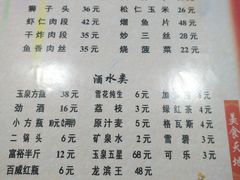 狮子头 38元 松仁玉米 26元
虾仁肉段 42元 熘鱼片 48元
干炸肉段 32元 炒三丝 28元
鱼香肉丝 35元 烧菠菜 22元
酒水类
玉泉方瓶 38元 雪花纯生 6 加
劲酒 16元 荔枝 3元 绿红茶 4元
小方瓶 10元 原汁麦 5元 格瓦斯 4元
二锅头 6元 矿泉水 2元 雪碧 3元
富裕半斤 12元 玉泉五星 68元 可乐 3元
百威红瓶 7元 龙滨王 48元
美食天地